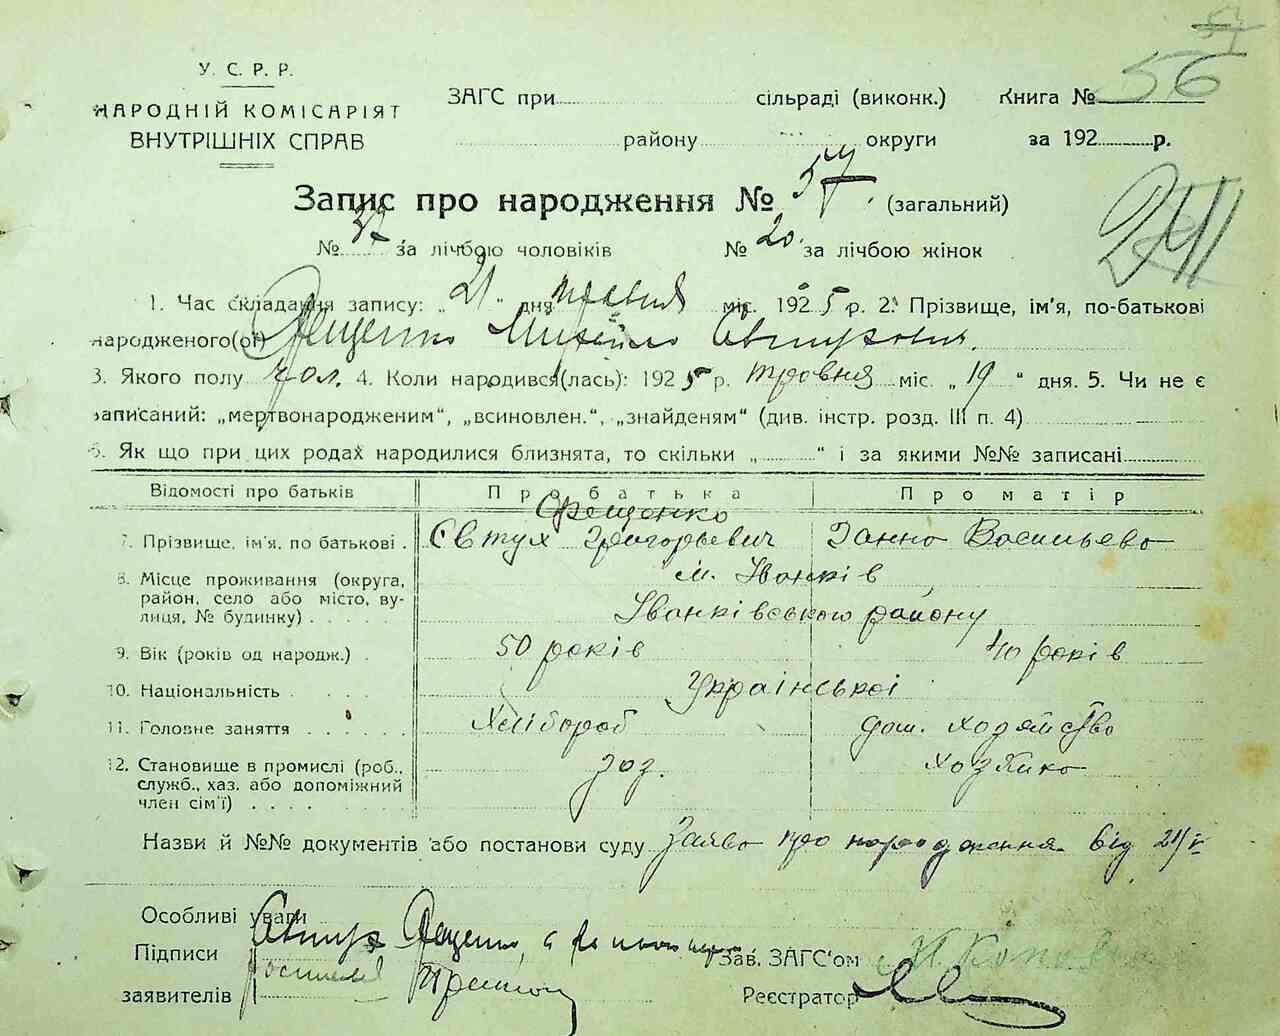 У. С. Р. Р.
НАРОДНІЙ КОМІСАРІЯТ
ВНУТРІШНІХ СПРАВ
ЗАГС при сільраді (виконк.) Книга № 56
району округи за 192 р.
Запис про народження № 57 (загальний)
№ 37 за лічбою чоловіків № 20 за лічбою жінок
241
1. Час складання запису: „21" дня травня міс. 1925 р. 2. Прізвище, ім'я, по-батькові
народженого(ої) Михайло Євтухович.
3. Якого полу чол. 4. Коли народився(лась): 1925 р. травня міс. „19" дня. 5. Чи не є
записаний: „мертвонародженим", „всиновлен.", „знайденям" (див. інстр. розд. III п. 4)
6. Як що при цих родах народилися близнята, то скільки „ " і за якими №№ записані
Відомості про батьків Про батька Про матір
7. Прізвище, ім'я, по батькові . Євтух Григорьевич Ганна Васильева
8. Місце проживання (округа, м. Іванків
район, село або місто, ву-
лиця, № будинку) . . . . . Іванківського району
9. Вік (років од народж.) . 50 років 40 років
10. Національність . . . . Української
11. Головне заняття . . . . . Хлібороб дом. хозяйство
12. Становище в промислі (роб., хоз. хозяйка
служб., хаз. або допоміжний
член сім'ї) . . . .
Назви й №№ документів або постанови суду Заява про народження від 21/V
Особливі уваги
Підписи Зав. ЗАГС'ом
заявителів Реєстратор